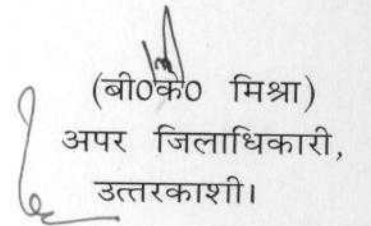 (बी०के० मिश्रा)
अपर जिलाधिकारी,
उत्तरकाशी।